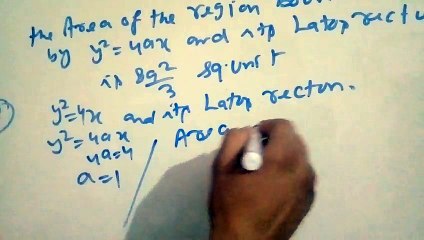 the Area of the region
by y²=4ax and its Latus rectu
is 8a²/3 sq. unit
y²=4x and its Latus rectum.
y²=4ax
4a=4
a=1
Area